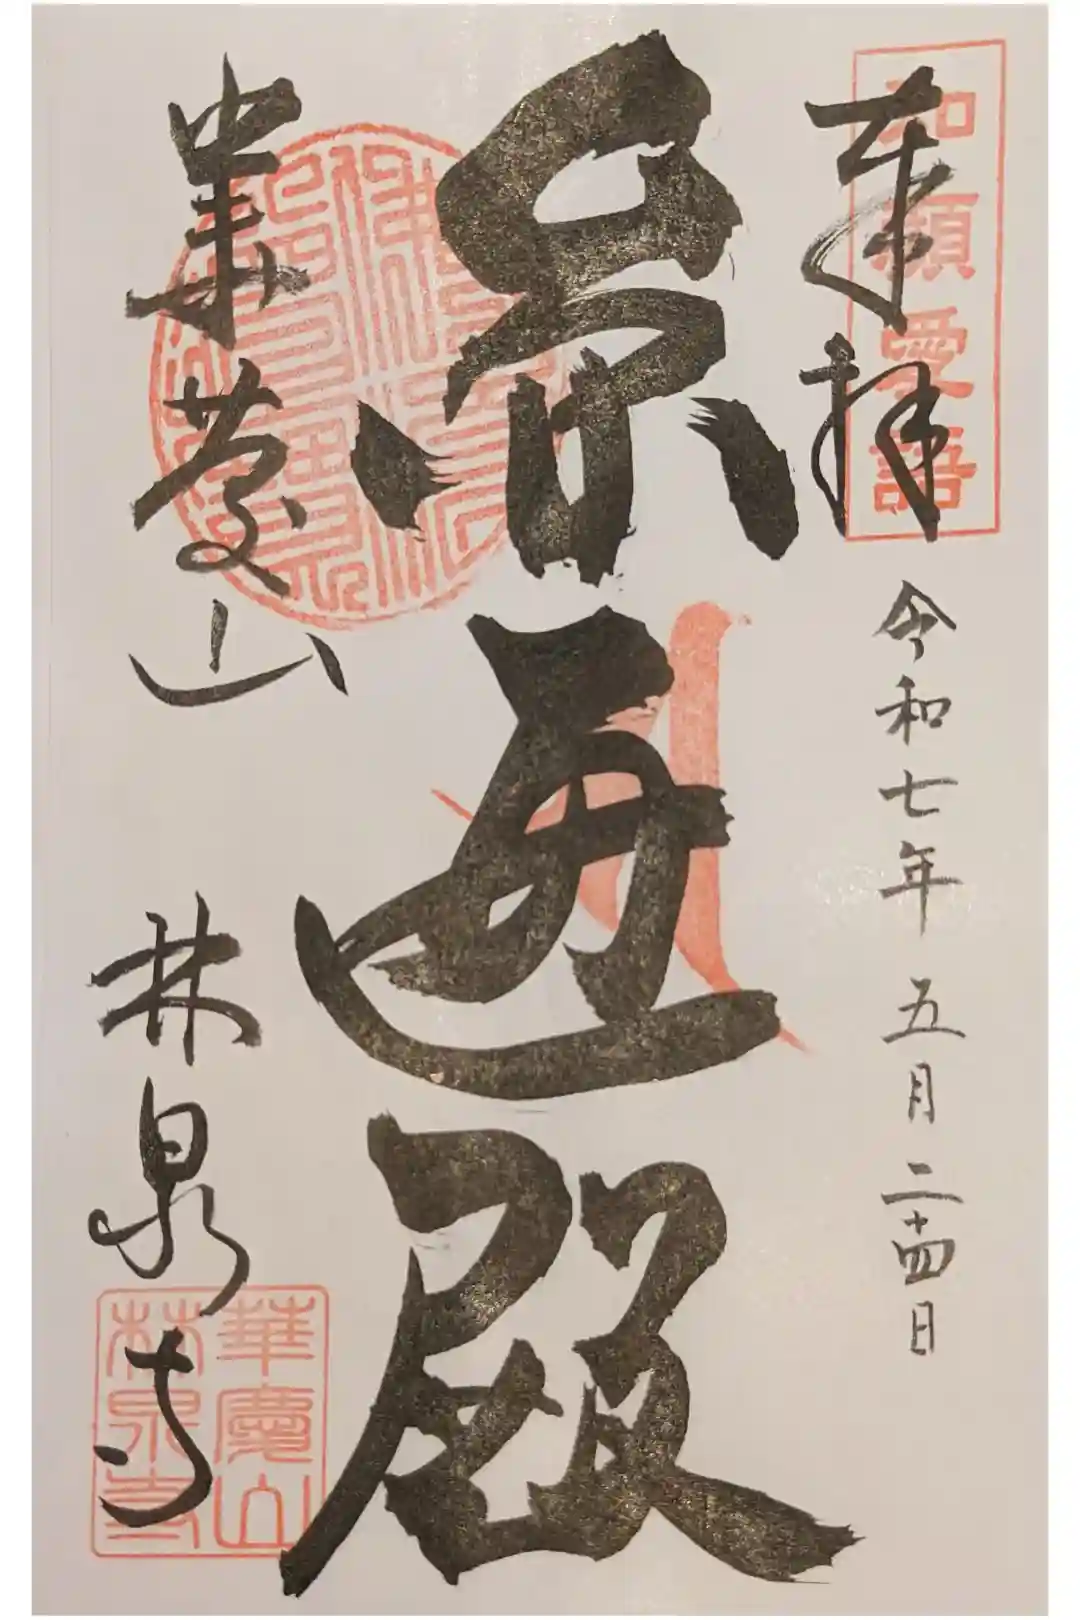 和顔愛語
奉拝
令和七年 五月二十四日
圓通殿
華慶山 林泉寺
華慶山
林泉寺